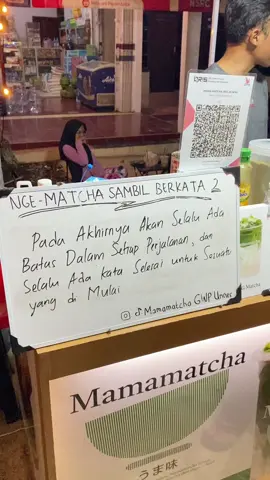 NGE-MATCHA SAMBIL BERKATA 2
Pada Akhirnya Akan Selalu Ada
Batas Dalam Setiap Perjalanan, dan
Selalu Ada kata Selesai untuk Sesuatu
yang di Mulai
Mamamatcha GWP Unnes
Mamamatcha
うま味